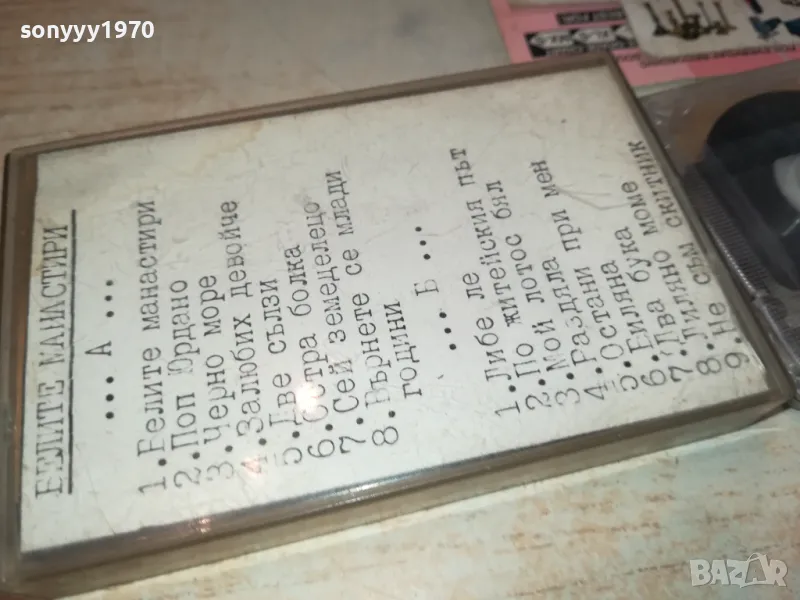 sonyyy1970
БЕЛИТЕ МАНАСТИРИ
... А ...
1.Белите манастири
2.Поп Йрдано
3.Черно море
4.Залюбих девойче
5.Две сълзи
6.Сестра болка
7.Сей земеделецо
8.Върнете се млади
години
... Б ...
1.Либе ле
2.По житейския път
3.Мой лотос бял
4.Раздяла при мен
Остани
5.Биляна
6.Два бука
7.Лиляно моме
8.Не съм скитник
9.
BAZAR